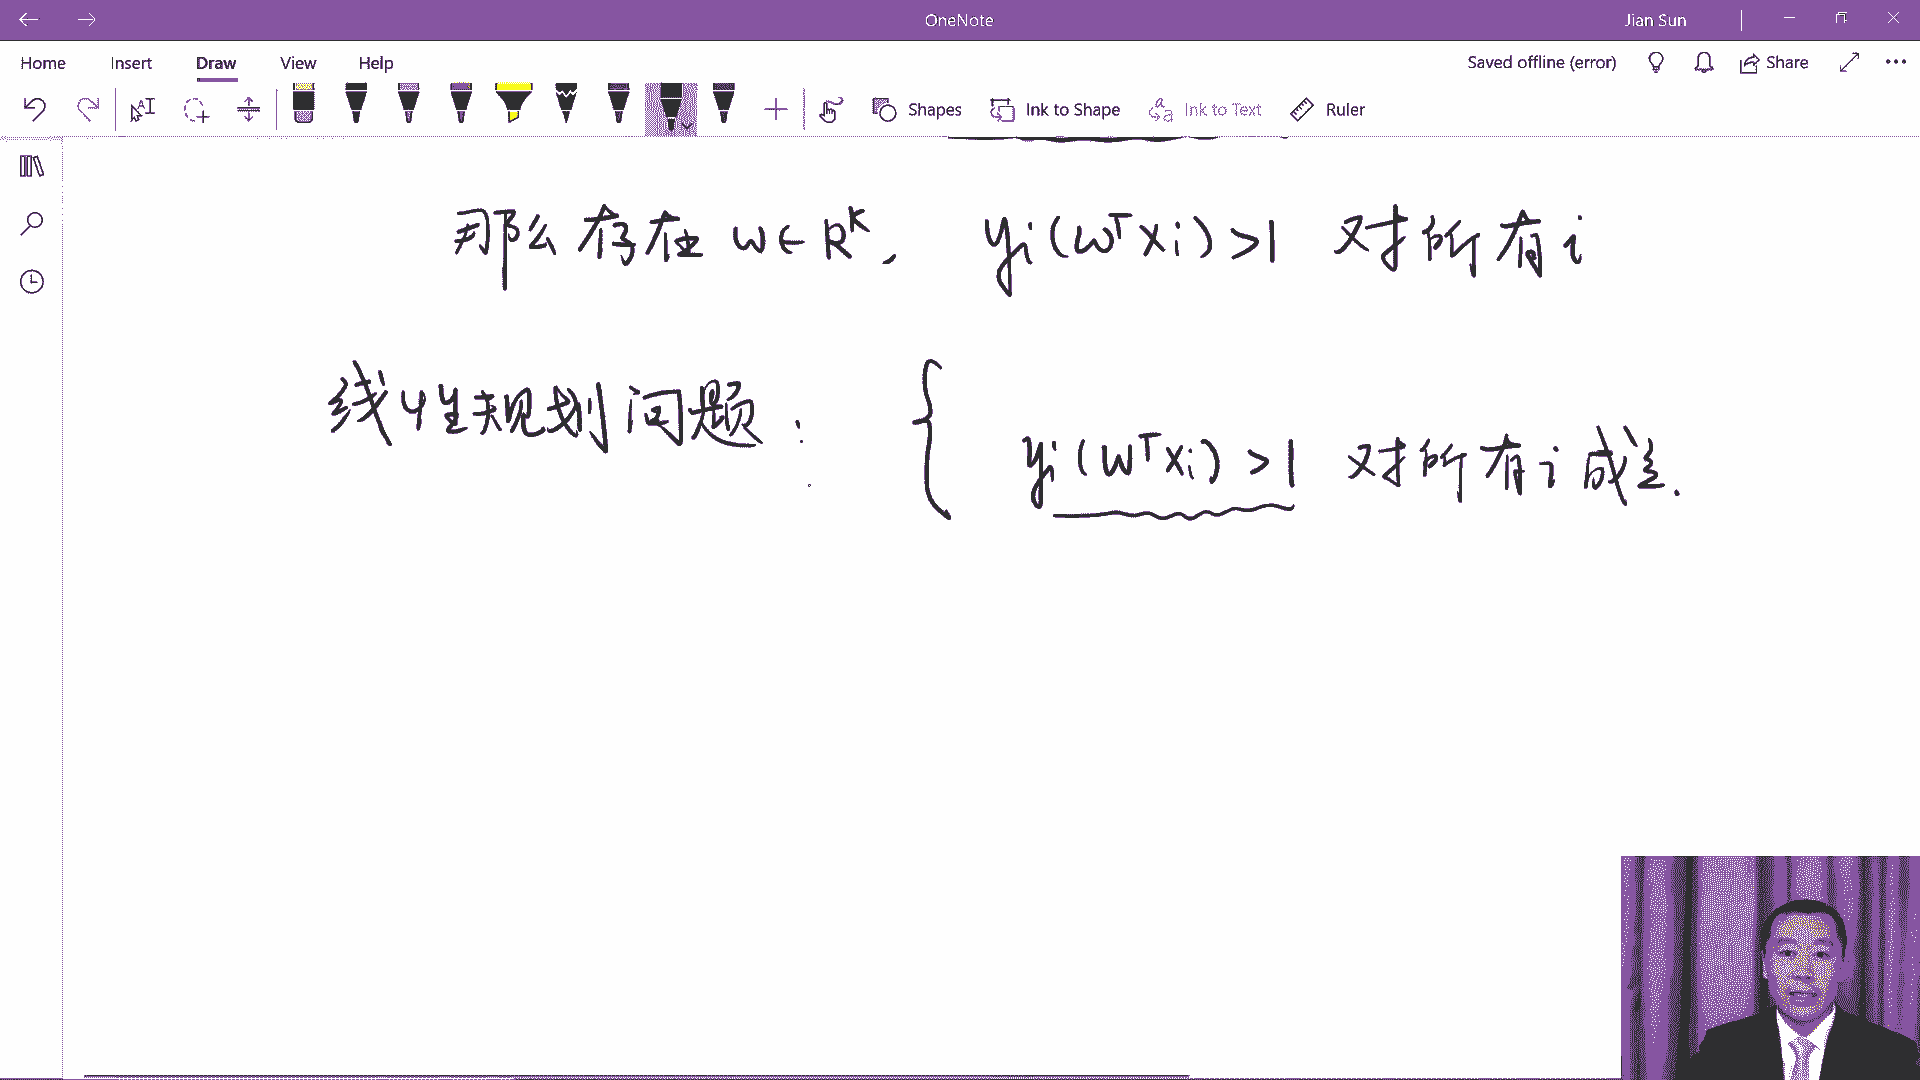 OneNote
Jian Sun
Home Insert Draw View Help
Saved offline (error) Share
Shapes Ink to Shape Ink to Text Ruler
那么存在 w∈R^K, yi(w^T xi)>1 对所有i
线性规划问题:
yi(w^T xi)>1 对所有i成立.